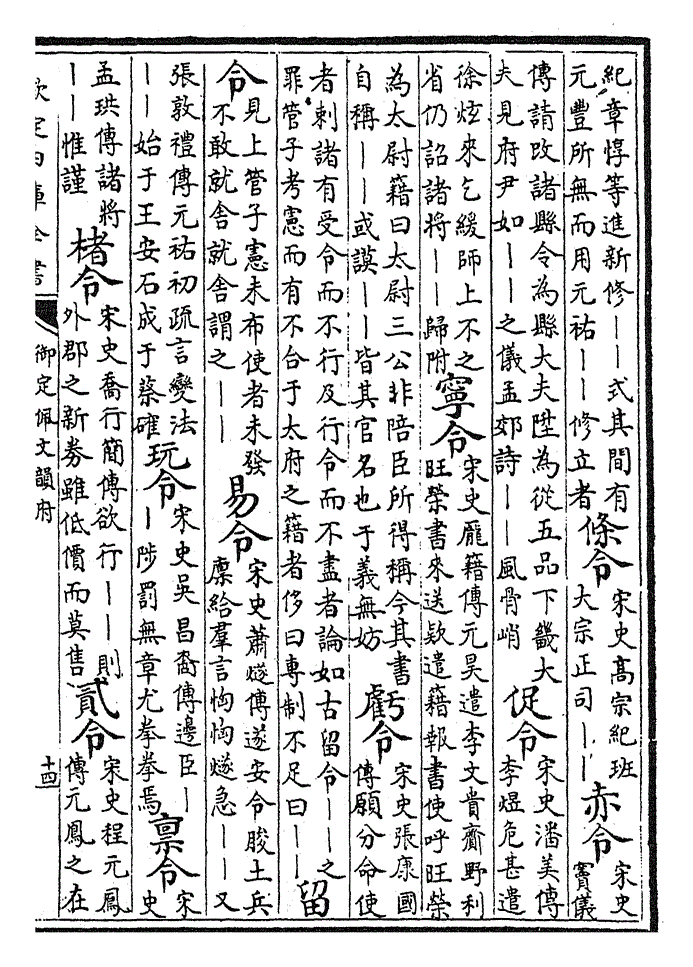 紀章惇等進新修——式其間有
元豐所無而用元祐——修立者
條令
宋史高宗紀班
大宗正司——
赤令
宋史
竇儀
傳請改諸縣令為縣大夫陞為從五品下畿大
夫見府尹如——之儀孟郊詩——風骨峭
促令
宋史潘美傳
李煜危甚遣
徐炫來乞緩師上不之
省仍詔諸將——歸附
寧令
宋史龐籍傳元昊遣李文貴齎野利
旺榮書來送欵遣籍報書使呼旺榮
為太尉籍曰太尉三公非陪臣所得稱今其書
自稱——或謨——皆其官名也于義無妨
虧令
宋史張康國
傳願分命使
者刺諸有受令而不行及行令而不盡者論如古留令——之
罪管子考憲而有不合于太府之籍者侈曰專制不足曰——
留
令
見上管子憲未布使者未發
不敢就舍就舍謂之——
易令
宋史蕭燧傳遂安令朘土兵
廩給羣言恟恟燧急——又
張敦禮傳元祐初疏言變法
——始于王安石成于蔡確
玩令
宋史吳昌裔傳邊臣—
—陟罰無章尤拳拳焉
稟令
宋
史
孟珙傳諸將
——惟謹
楮令
宋史喬行簡傳欲行——則
外郡之新券雖低價而莫售
貳令
宋史程元鳳
傳元鳳之在
欽定四庫全書
御定佩文韻府
十四